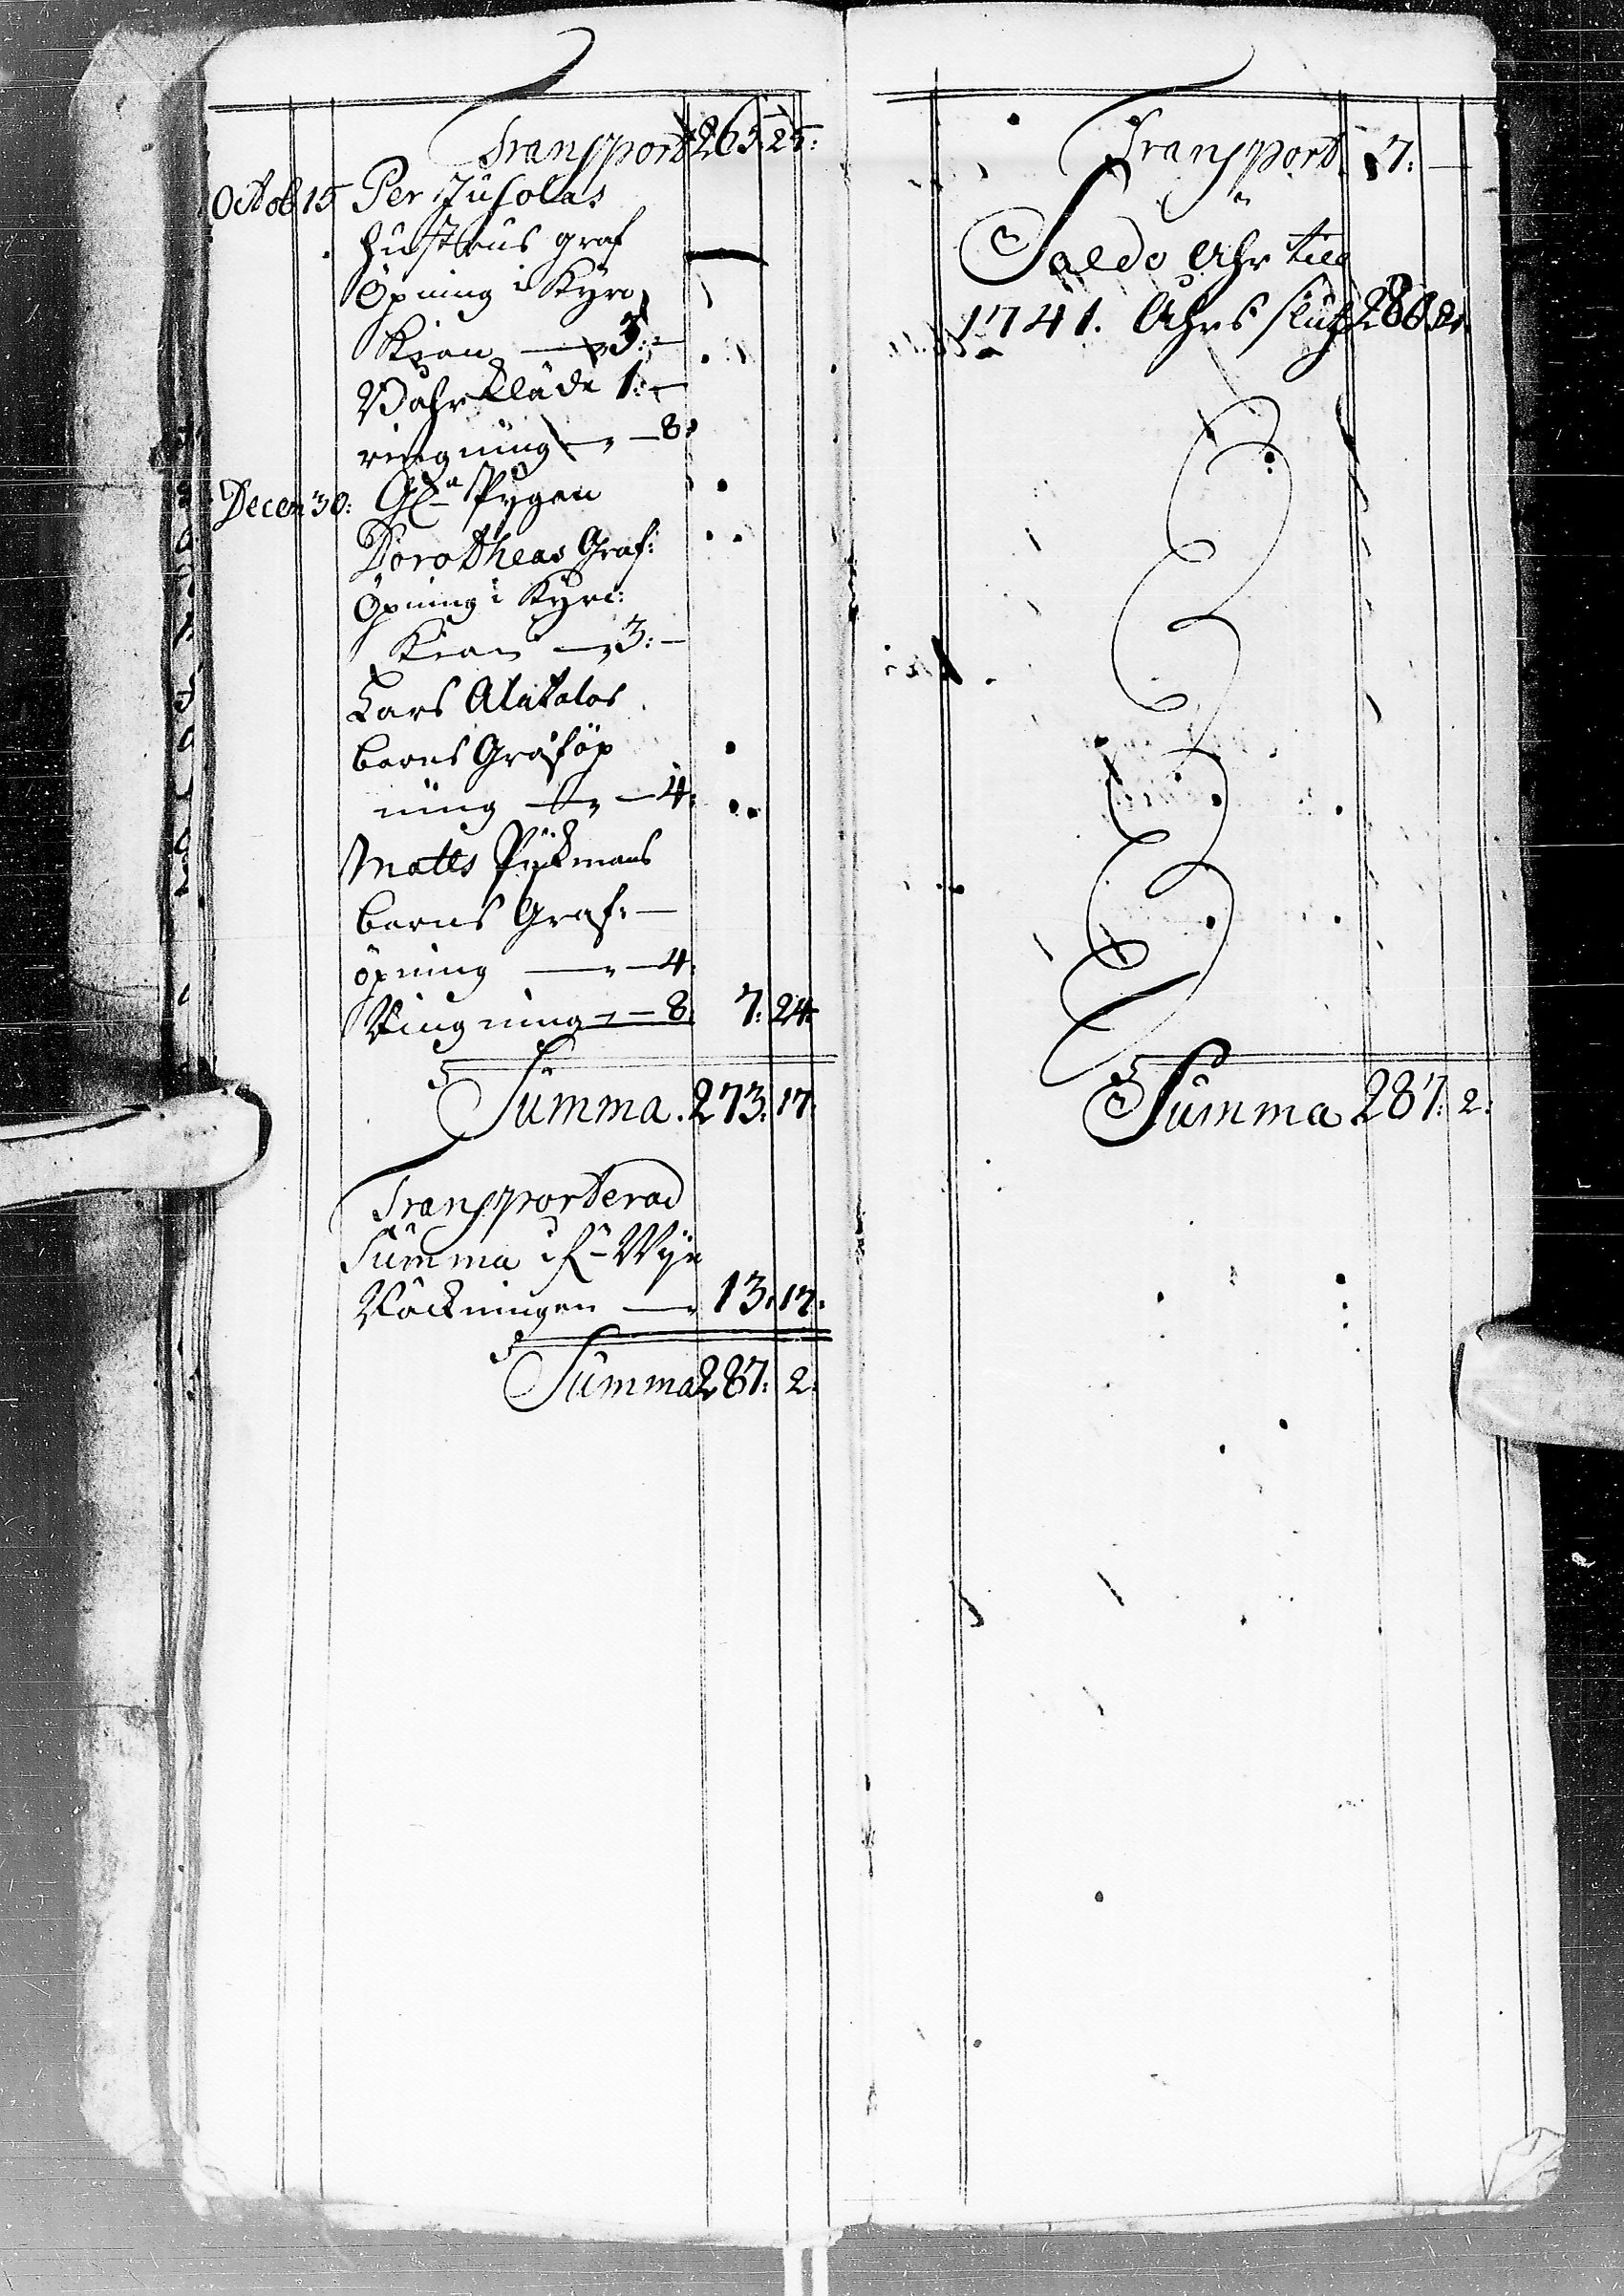 Transport 265: 25:
Octob 15 Per Jusolas
hustrus graf
Öpning i Kyr
kian — 3: —
Bahrkläde 1: —
ringning — 8:
Decem 30: Gl Pygen
Dorotheas Graf:
Öpning i Kyr:
kian — 3: —
Lars Alatalos
barns Graföp
ning — 4:
Matts Pijckmans
barns Graf: —
öpning — 4:
Ringning — 8. 7: 24:
Summa. 273: 17:
Transporterad
Summa i
Räckningen — 13: 17:
Summa 287: 2:
Transport 7: —
Saldo Ahr till
1741. Ahrs slut 286
Summa 287: 2: